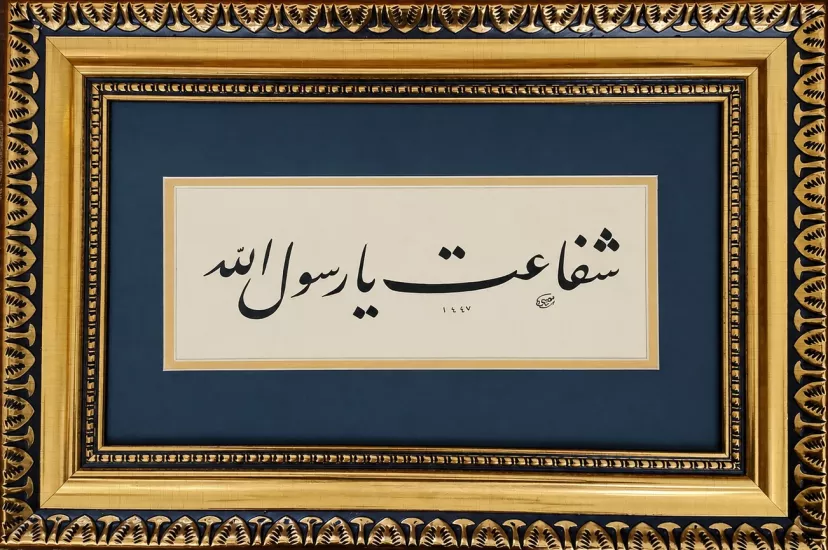 شفاعت یا رسول الله
١٤٤٧